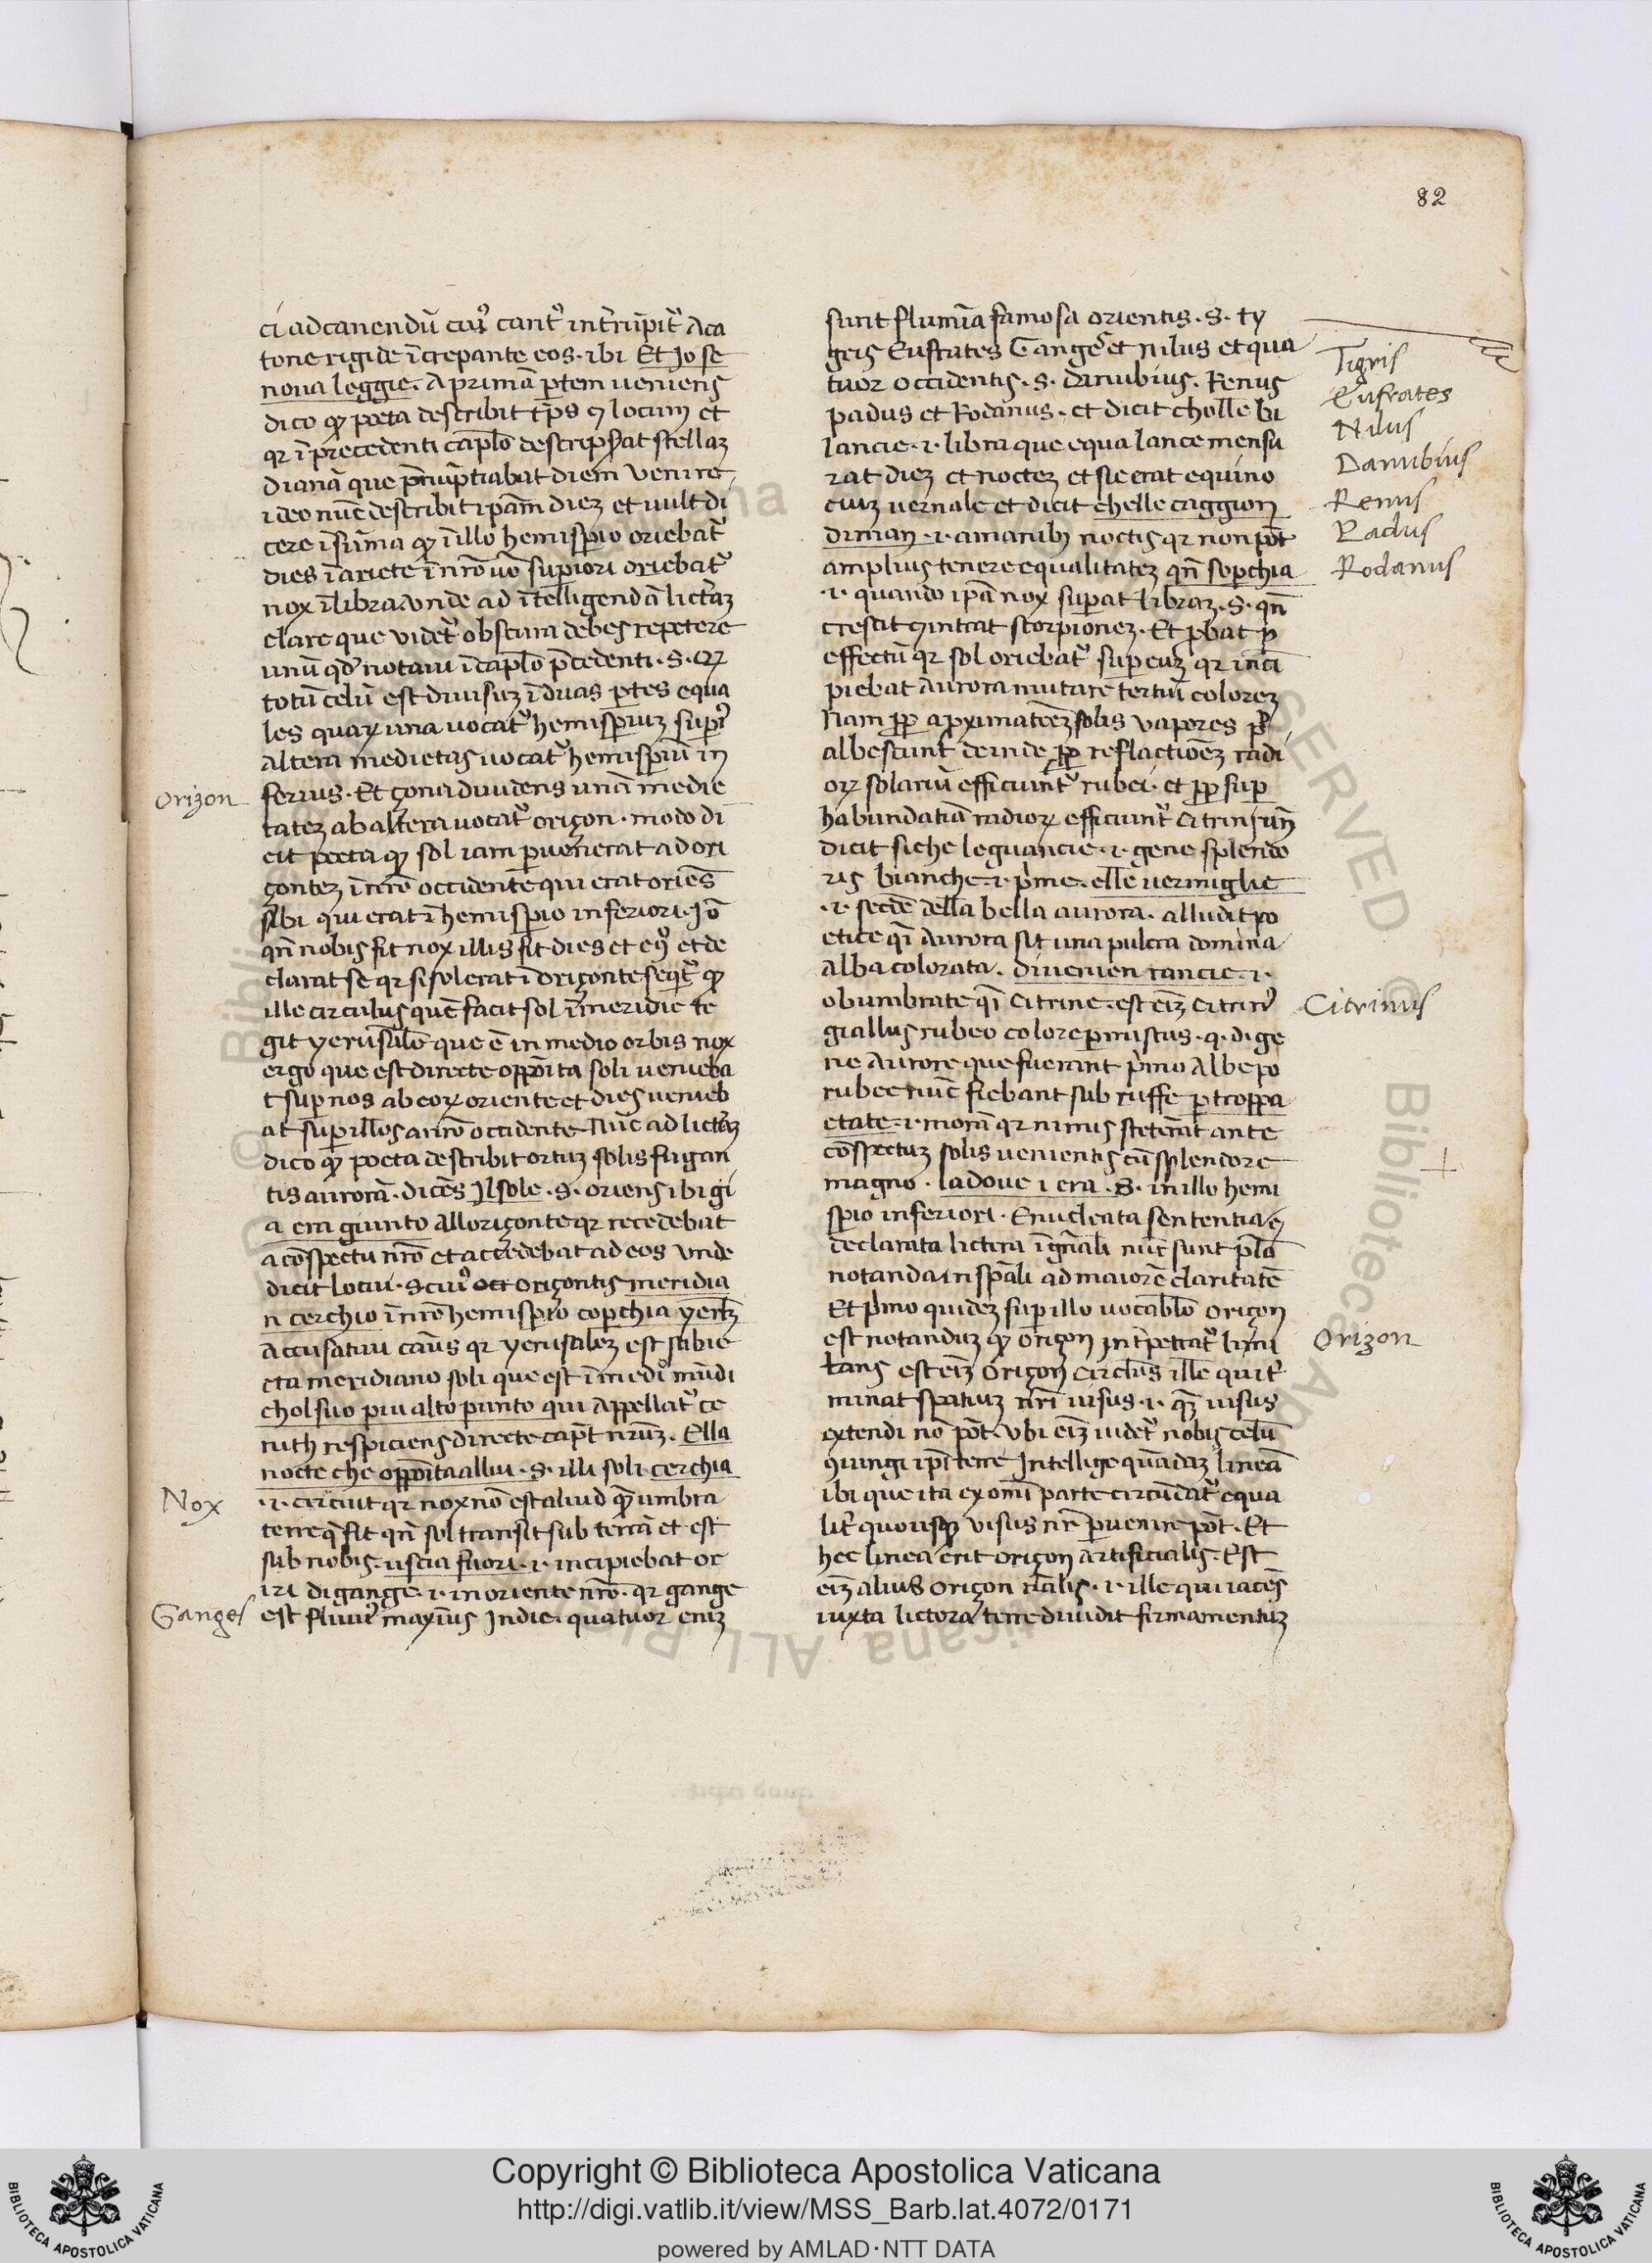 82
ci ad canendũ cuiꝰ cantꝰ intrũpitᷣ a ca
tone rigide ĩcrepante eos. ibi Et io se
noua leggie. A primã ptem ueniens
dico ꝙ poeta describit tp̃s ⁊ locum et
qꝛ ĩ precedenti caplo descripserat stellaz
dianã que pñuptiabat diem venire
ideo nũc describit ipam diez et uult di
cere ĩ sũma ꝙ ĩ illo hemisperio oriebatᷣ
dies ĩ ariete ĩ nrõ uõ superiori oriebatᷣ
nox ĩ libra. vnde ad ĩtelligendã licteraz
clare que videtᷣ obscura debes repetere
unũ qd notaui ĩ caplo p̃cedenti. s. qꝛ
totũ celũ est diuisuz ĩ duas ptes equa
les quaꝝ una uocatᷣ hemisperiuz supiꝰ
altera medietas uocatᷣ hemisperiũ in
ferius. Et çona diuidens unã medie
tatez ab altera uocatᷣ oriçon. modo di
cit poeta ꝙ sol iam peruenerat ad ori
çontez ĩ nrõ occidente qui erat oriẽs
sibi qui erat ĩ hemisperio inferiori. Iõ
qñ nobis fit nox illis fit dies et eꝯ et de
clarat se qꝛ si sol erat ĩ oriçonte seqᷣtᷣ ꝙ
ille circulus quẽ facit sol ĩ meridie te
git yerusalẽ que ẽ in medio orbis nox
ergo que est directe opposita soli ueneba
t super nos ab eoꝝ oriente et dies uenieb
at super illos a nrõ occidente. Nũc ad licteraz
dico ꝙ poeta describit ortuz solis fugan
tis aurorã. dicẽs Il sole. s. oriens ibi gi
a era giunto all oriçonte qꝛ recedebat
a cõspectu nrõ et accedebat ad eos vnde
dicit lo cui. s. cuiꝰ oct oriçontis meridia
n cerchio ĩ nrõ hemisperio coperchia yerlz
Accusatiui casus qꝛ yerusalez est subie
cta meridiano soli que est ĩ medio mũdi
chol suo piu alto punto qui appellatᷣ ce
nith respiciens directe caput nrũz. Ella
nocte che opposita a llui. s. illi soli cerchia
.i. circuit qꝛ nox nõ est aliud qᷓ umbra
terre q̃ fit qñ sol transit sub terrã et est
sub nobis. uscia fuori. i. incipiebat or
iri di gange. i. in oriente nrõ. qꝛ gange
est fluuiꝰ maximus Indie. quatuor eniz
Orizon
Nox
Ganges
sunt flumĩa famosa orientis. s. ty
gris Eufrates Gangeᷤ et Nilus et qua
tuor occidentis. s. danubius. Renus
padus et Rodanus. et dicit cholle bi
lancie. i. libra que equa lance mensu
rat diez et noctez et sic erat equino
ciuz uernale et dicit chelle caggion
di man. i. a manibꝫ noctis qꝛ non põt
amplius tenere equalitatez qñ soperchia
.i. quando ipã nox superat libraz. s. qñ
crescit ⁊ intrat scorpionez. Et pbat p
effectũ qꝛ sol oriebatᷣ super euz qꝛ inci
piebat aurora mutare tertiũ colorez
Nam pp apximatõez solis vapores pꝰ
albescunt deinde pp reflactiõez radi
oꝝ solariũ efficiuntᷣ rubei. et pp super
habundãtiã radioꝝ efficiuntᷣ citrini vñ
dicit si che le guancie. i. gene splendo
ris bianche. i. p̃me. elle uermiglie
.i. secde della bella aurora. alludit po
etice qĩ Aurora sit una pulcra domina
alba colorata. diuenien rancie. i.
obumbrate qĩ citrine. est eiz citrinꝰ
giallus rubeo colore permistus. q. d. i ge
ne aurore que fuerant p̃mo albe po
rubee nũc fiebant sub ruffe per troppa
etate. i. morã qꝛ nimis steterant ante
cõspectuz solis uenientis cũ splendore
magno. la doue i era. s. in illo hemi
sperio inferiori. Enucleata sententia ⁊
declarata lictera ĩ gñali nũc sunt pla
notanda in spãli ad maiorẽ claritatẽ
Et p̃mo quidez super illo uocablo oriçon
est notanduz ꝙ oriçon interpetratᷣ limi
tans est eiz oriçon circlus ille qui tᷣ
minat spatiuz nrĩ uisus. i. qᷓ uisus
extendi nõ põt. vbi eiz uidetᷣ nobis celũ
⁊iungi ipĩ terre Intellige quãdaz lineã
ibi que ita ex omĩ parte circũdatᷣ equa
litᷣ quousqꝫ visus nr̃ peruenire põt. Et
hec linea erit oriçon artificialis. Est
eiz alius oriçon nãlis. i. ille qui iacẽs
iuxta lictora terre diuidit firmamentuz
Tigris
Eufrates
Nilus
Danubius
Renus
Padus
Rodanus
Citrinus
Orizon
Copyright © Biblioteca Apostolica Vaticana
http://digi.vatlib.it/view/MSS_Barb.lat.4072/0171
powered by AMLAD·NTT DATA